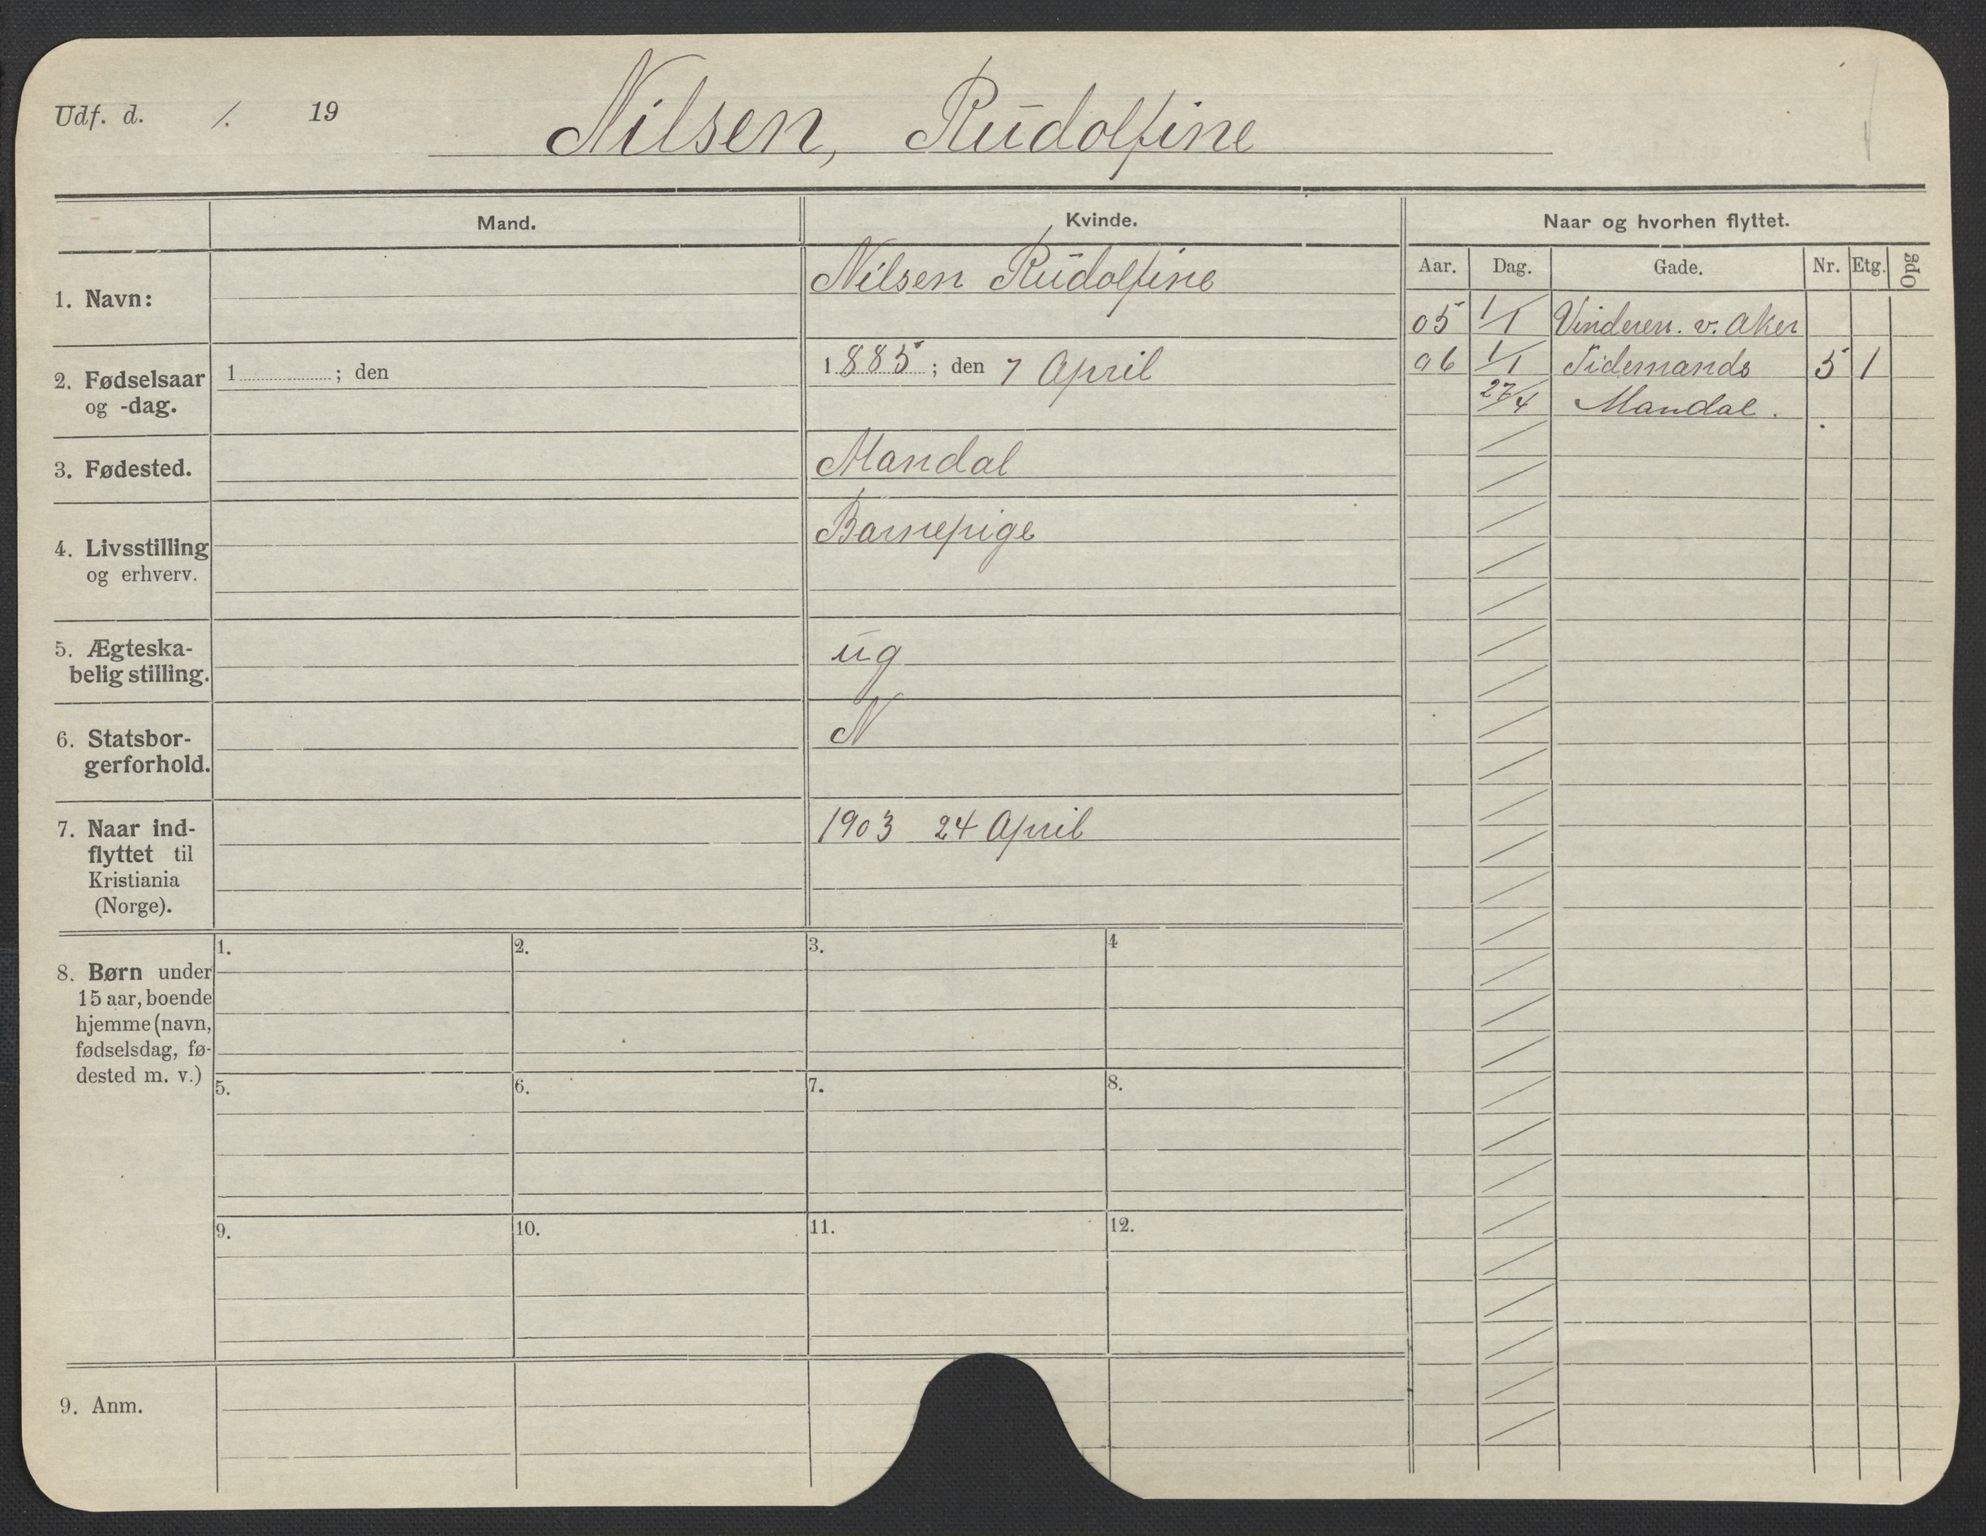 Udf. d. /. 19
Nilsen, Rudolfine
Mand.
Kvinde.
Naar og hvorhen flyttet.
Aar. Dag. Gade. Nr. Etg. Opg
1. Navn:
Nilsen Rudolfine
05 1/1 Vinderen. v. Aker
2. Fødselsaar
og -dag.
1 ; den
1885 ; den 7 April
06 1/1 Tidemands 5 1
27/4 Mandal.
3. Fødested.
Mandal
4. Livsstilling
og erhverv.
Barnepige
5. Ægteska-
belig stilling.
ug
6. Statsbor-
gerforhold.
N
7. Naar ind-
flyttet til
Kristiania
(Norge).
1903 24 April
8. Børn under
15 aar, boende
hjemme (navn,
fødselsdag, fø-
dested m. v.)
1. 2. 3. 4
5. 6. 7. 8.
9. 10. 11. 12.
9. Anm.